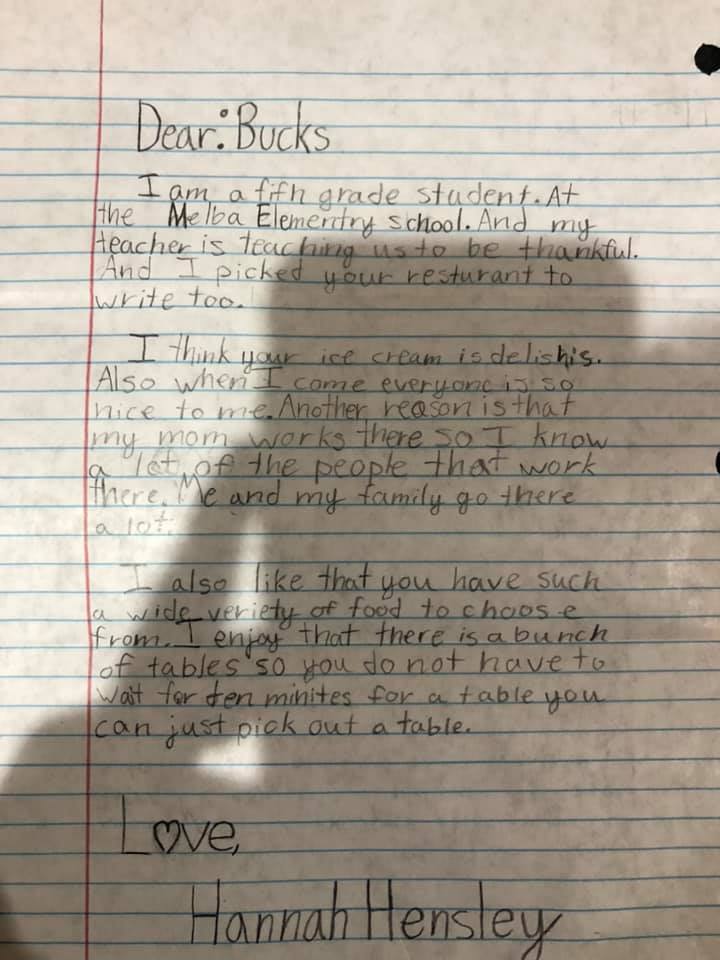 Dear: Bucks
I am a fifh grade student. At
the Melba Elementry school. And my
teacher is teaching us to be thankful.
And I picked your resturant to
write too.
I think your ice cream is delishis.
Also when I come everyone is so
nice to me. Another reason is that
my mom works there so I know
a lot of the people that work
there. Me and my family go there
a lot.
I also like that you have such
a wide veriety of food to choose
from. I enjoy that there is a bunch
of tables so you do not have to
wait for ten minites for a table you
can just pick out a table.
Love,
Hannah Hensley